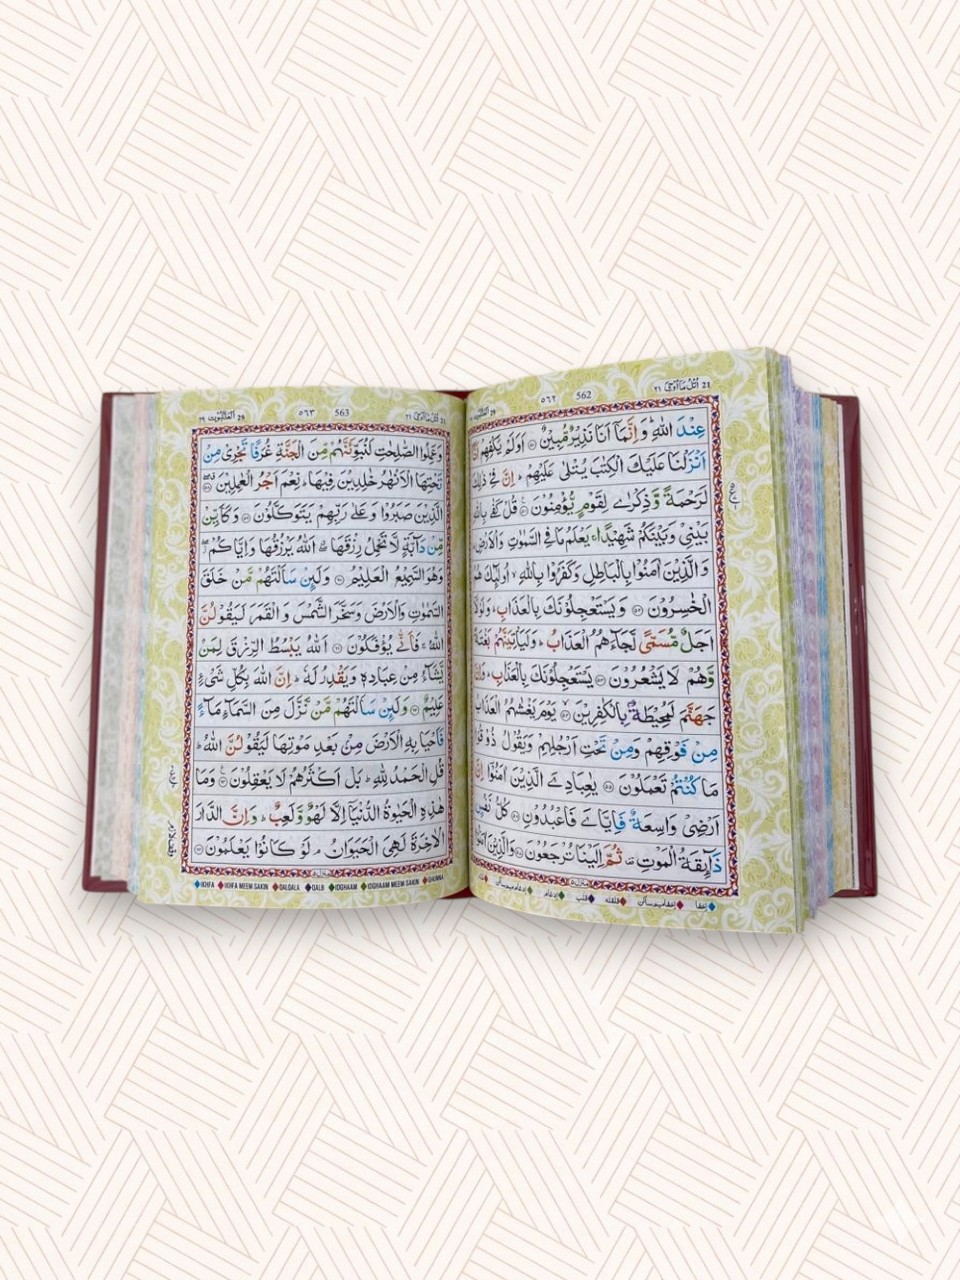 21 اُتْلُ مَآ اُوْحِیَ ٢١
562 ٥٦٢
29 اَلْعَنْكَبُوْت
عِنْدَ اللّٰهِ وَاِنَّمَآ اَنَا نَذِیْرٌ مُّبِیْنٌ ۝ اَوَلَمْ یَكْفِهِمْ
اَنْزَلْنَا عَلَیْكَ الْكِتٰبَ یُتْلٰی عَلَیْهِمْ ؕ اِنَّ فِیْ ذٰلِكَ
لَرَحْمَةً وَّذِكْرٰی لِقَوْمٍ یُّؤْمِنُوْنَ ۝ قُلْ كَفٰی بِاللّٰهِ
بَیْنِیْ وَبَیْنَكُمْ شَهِیْدًا ۚ یَعْلَمُ مَا فِی السَّمٰوٰتِ وَالْاَرْضِ
وَالَّذِیْنَ اٰمَنُوْا بِالْبَاطِلِ وَكَفَرُوْا بِاللّٰهِ ۙ اُولٰٓئِكَ هُمُ
الْخٰسِرُوْنَ ۝ وَیَسْتَعْجِلُوْنَكَ بِالْعَذَابِ ؕ وَلَوْلَاۤ
اَجَلٌ مُّسَمًّی لَّجَآءَهُمُ الْعَذَابُ ؕ وَلَیَاْتِیَنَّهُمْ بَغْتَةً
وَّهُمْ لَا یَشْعُرُوْنَ ۝ یَسْتَعْجِلُوْنَكَ بِالْعَذَابِ ؕ وَاِنَّ
جَهَنَّمَ لَمُحِیْطَةٌۢ بِالْكٰفِرِیْنَ ۝ یَوْمَ یَغْشٰىهُمُ الْعَذَابُ
مِنْ فَوْقِهِمْ وَمِنْ تَحْتِ اَرْجُلِهِمْ وَیَقُوْلُ ذُوْقُوْا
مَا كُنْتُمْ تَعْمَلُوْنَ ۝ یٰعِبَادِیَ الَّذِیْنَ اٰمَنُوْۤا اِنَّ
اَرْضِیْ وَاسِعَةٌ فَاِیَّایَ فَاعْبُدُوْنِ ۝ كُلُّ نَفْسٍ
ذَآئِقَةُ الْمَوْتِ ۟ ثُمَّ اِلَیْنَا تُرْجَعُوْنَ ۝ وَالَّذِیْنَ اٰمَنُوْا
إخفا إخفا میم ساکن قلقله قلب إدغام إدغام میم ساکن
21 اُتْلُ مَآ اُوْحِیَ ٢١
563 ٥٦٣
29 اَلْعَنْكَبُوْت ٢٩
وَعَمِلُوا الصّٰلِحٰتِ لَنُبَوِّئَنَّهُمْ مِّنَ الْجَنَّةِ غُرَفًا تَجْرِیْ مِنْ
تَحْتِهَا الْاَنْهٰرُ خٰلِدِیْنَ فِیْهَا ؕ نِعْمَ اَجْرُ الْعٰمِلِیْنَ ۝
الَّذِیْنَ صَبَرُوْا وَعَلٰی رَبِّهِمْ یَتَوَكَّلُوْنَ ۝ وَكَاَیِّنْ
مِّنْ دَآبَّةٍ لَّا تَحْمِلُ رِزْقَهَا ۖ اَللّٰهُ یَرْزُقُهَا وَاِیَّاكُمْ ۖ
وَهُوَ السَّمِیْعُ الْعَلِیْمُ ۝ وَلَئِنْ سَاَلْتَهُمْ مَّنْ خَلَقَ
السَّمٰوٰتِ وَالْاَرْضَ وَسَخَّرَ الشَّمْسَ وَالْقَمَرَ لَیَقُوْلُنَّ
اللّٰهُ ۚ فَاَنّٰی یُؤْفَكُوْنَ ۝ اَللّٰهُ یَبْسُطُ الرِّزْقَ لِمَنْ
یَّشَآءُ مِنْ عِبَادِهٖ وَیَقْدِرُ لَهٗ ؕ اِنَّ اللّٰهَ بِكُلِّ شَیْءٍ
عَلِیْمٌ ۝ وَلَئِنْ سَاَلْتَهُمْ مَّنْ نَّزَّلَ مِنَ السَّمَآءِ مَآءً
فَاَحْیَا بِهِ الْاَرْضَ مِنْۢ بَعْدِ مَوْتِهَا لَیَقُوْلُنَّ اللّٰهُ ؕ
قُلِ الْحَمْدُ لِلّٰهِ ؕ بَلْ اَكْثَرُهُمْ لَا یَعْقِلُوْنَ ۝ وَمَا
هٰذِهِ الْحَیٰوةُ الدُّنْیَاۤ اِلَّا لَهْوٌ وَّلَعِبٌ ؕ وَاِنَّ الدَّارَ
الْاٰخِرَةَ لَهِیَ الْحَیَوَانُ ۘ لَوْ كَانُوْا یَعْلَمُوْنَ ۝
IKHFA IKHFA MEEM SAKIN QALQALA QALB IDGHAAM IDGHAAM MEEM SAKIN GHUNNA